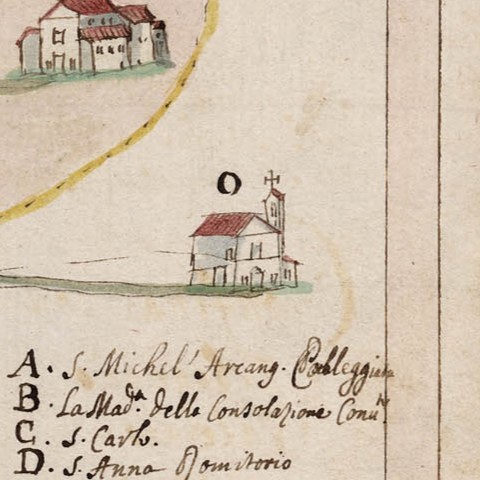 O
A. S. Michel' Arcang. Colleggiata
B. La Mad.ª della Consolazione Conu.
C. S. Carlo.
D. S. Anna Romitorio